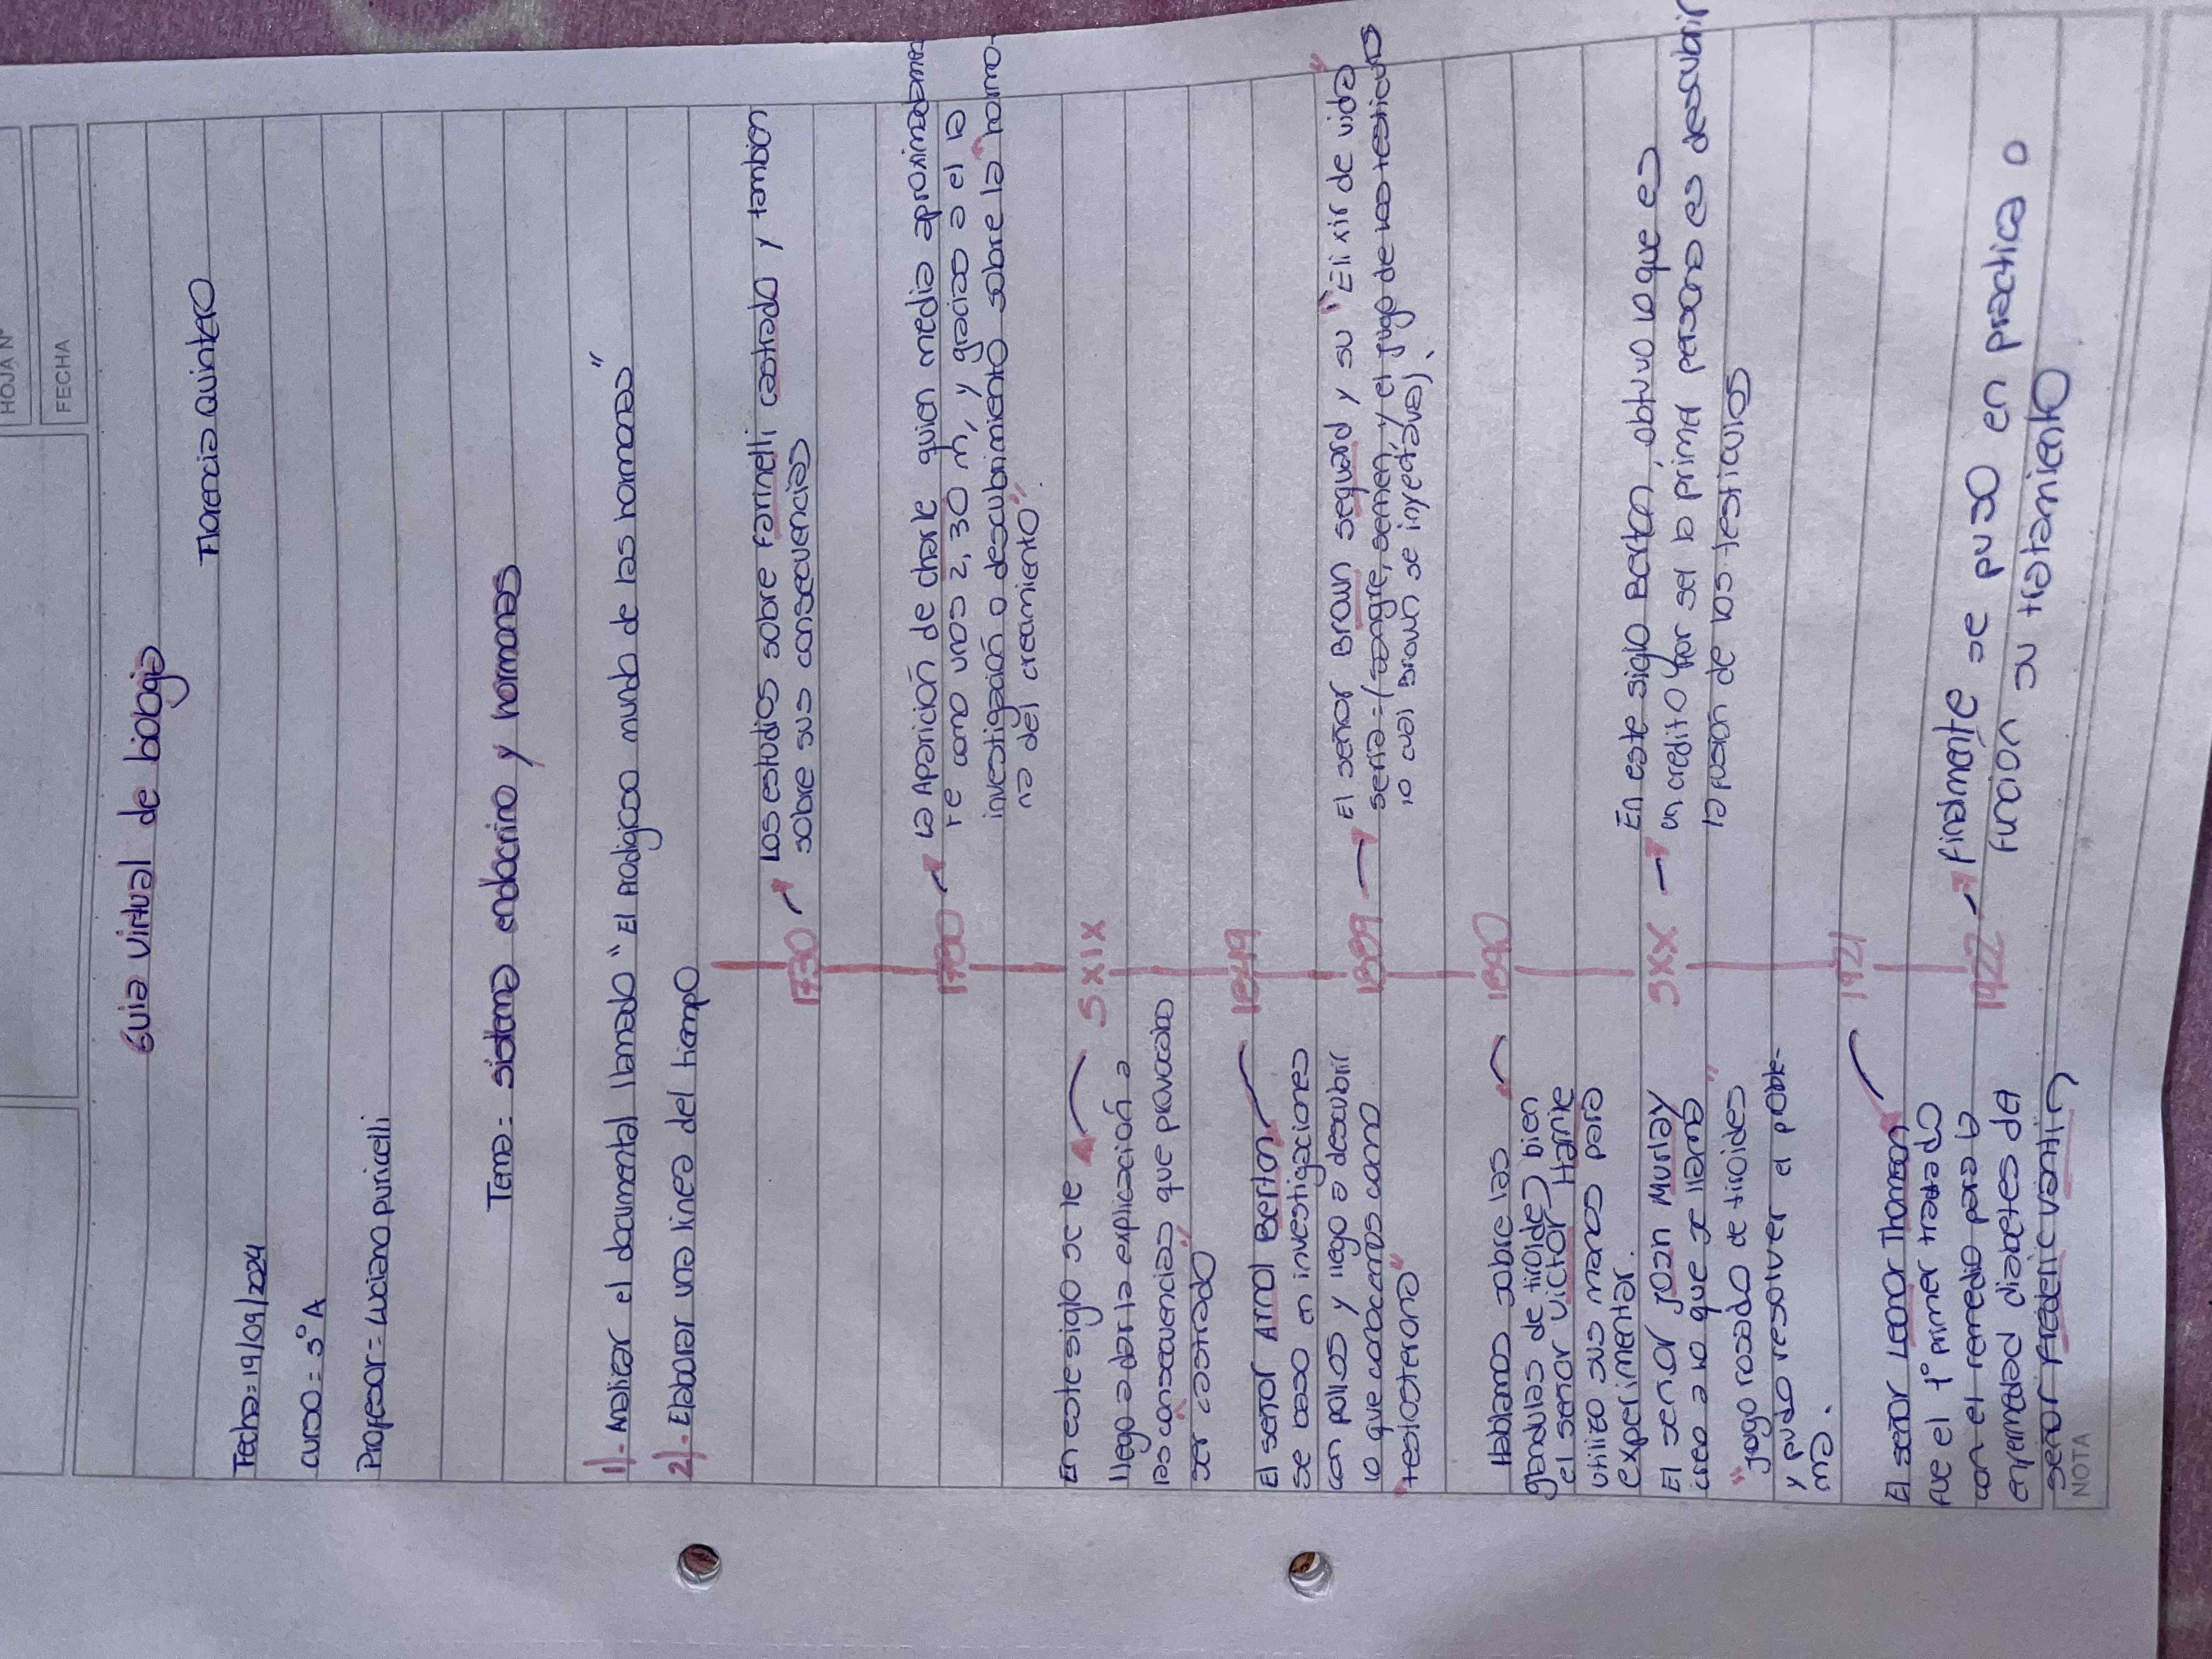 HOJA N°
FECHA
Guia virtual de biologia
Florencia Quintero
Fecha = 19/09/2024
curso = 3° A
Profesor = Luciano puricelli
Tema = sistema endocrino y hormonas
1)- Analizar el documental llamado "El Prodigioso mundo de las hormonas"
2)- Elaborar una linea del tiempo
1730
Los estudios sobre Farinelli castrado y tambien
sobre sus consecuencias
1780
La Aparición de charle quien media aproximadamen
te como unos 2,30 m, y gracias a el la
investigación o descubrimiento sobre la "hormo-
na del creamiento"
S XIX
En este siglo se le
llego a dar la explicación a
las "consecuencias" que provocaba
ser castrado
1849
El señor Arnol Berton
se baso en investigaciones
con pollos y llego a descubrir
lo que conocemos como
"testosterona"
1889
El señor Brown sequard y su "Elixir de vida"
seria = (sangre, semen, y el jugo de los testiculos
lo cual Brown se inyectava).
1890
Hablamos sobre las
gandulas de tiroide) bien
el señor Victor Harnie
utilizo sus manos para
experimentar.
El señor Joan Murlay
creo a lo que se llama
"jugo rosado de tiroides"
y pudo resolver el proble-
ma.
SXX
En este siglo Berton, obtuvo lo que es
un credito por ser la primer persona es descubrir
la fusion de los testiculos
1921
El señor Leonor Thomson
fue el 1° primer tratado
con el remedio para la
enfermedad diabetes del
señor Frederic vantin
1922
Finalmente se puso en practica o
funcion su tratamiento
NOTA